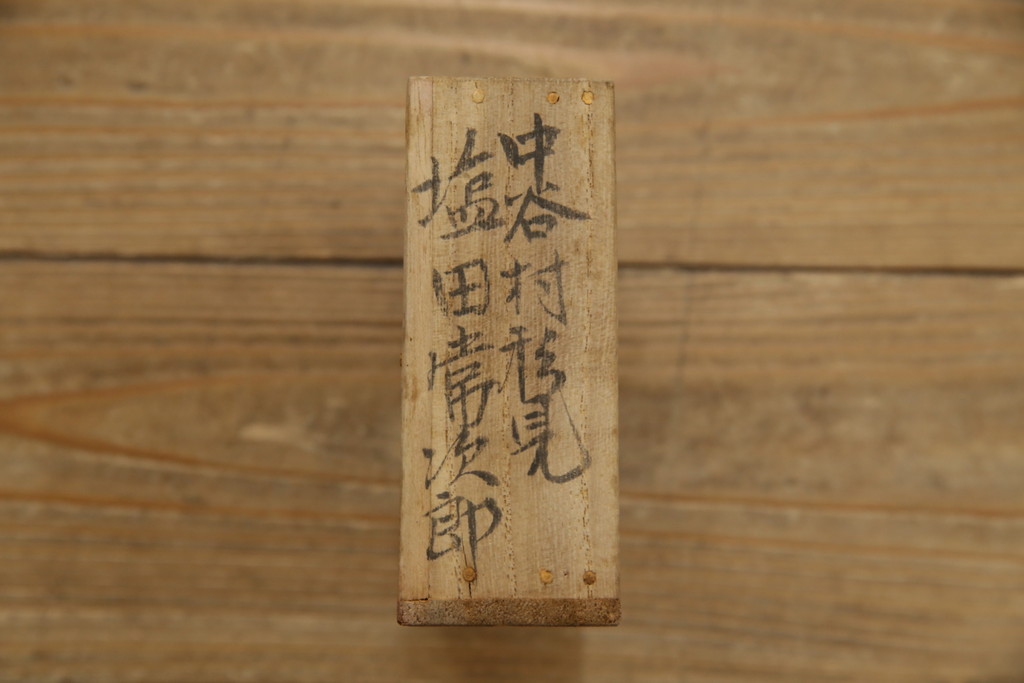 中谷村見
塩田常次郎